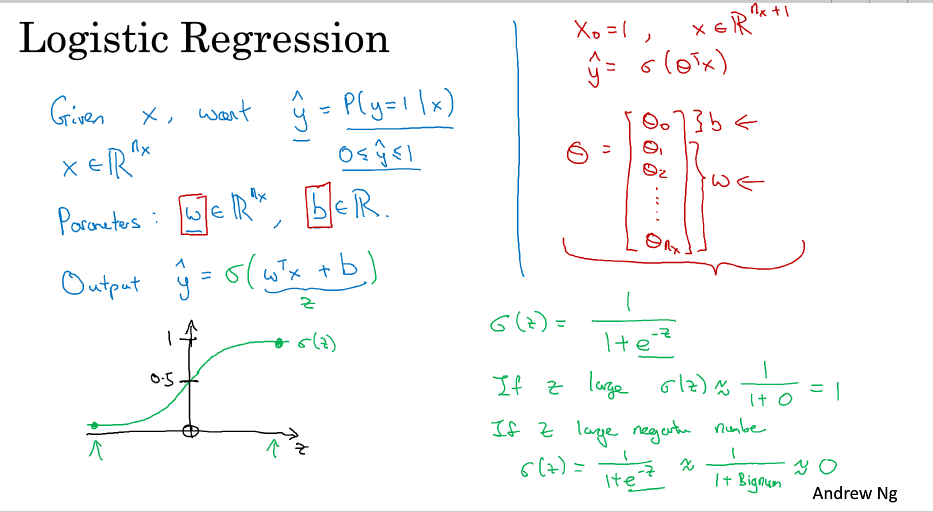 Logistic Regression
Given x, want ŷ = P(y=1|x)
x ∈ ℝ^{n_x}
0 ≤ ŷ ≤ 1
Parameters: w ∈ ℝ^{n_x}, b ∈ ℝ.
Output ŷ = σ(wᵀx + b)
z
1
σ(z)
0.5
z
x₀ = 1, x ∈ ℝ^{n_x+1}
ŷ = σ(θᵀx)
θ = [θ₀ θ₁ θ₂ ⋮ θ_{n_x}]
} b ←
} w ←
σ(z) = 1 / (1 + e^{-z})
If z large σ(z) ≈ 1 / (1 + 0) = 1
If z large negative number
σ(z) = 1 / (1 + e^{-z}) ≈ 1 / (1 + Bignum) ≈ 0
Andrew Ng